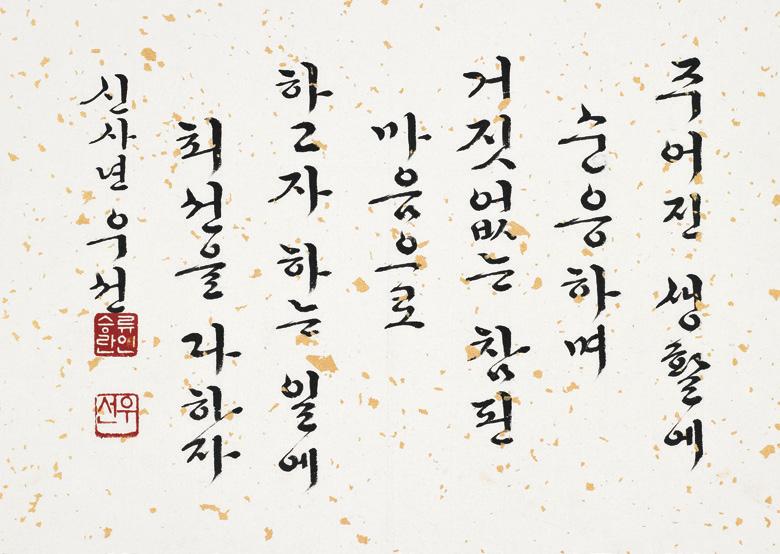 주어진 생활에
순응하며
거짓없는 참된
마음으로
하고자 하는 일에
최선을 다하자
신사년 우선
류인
승란
우선